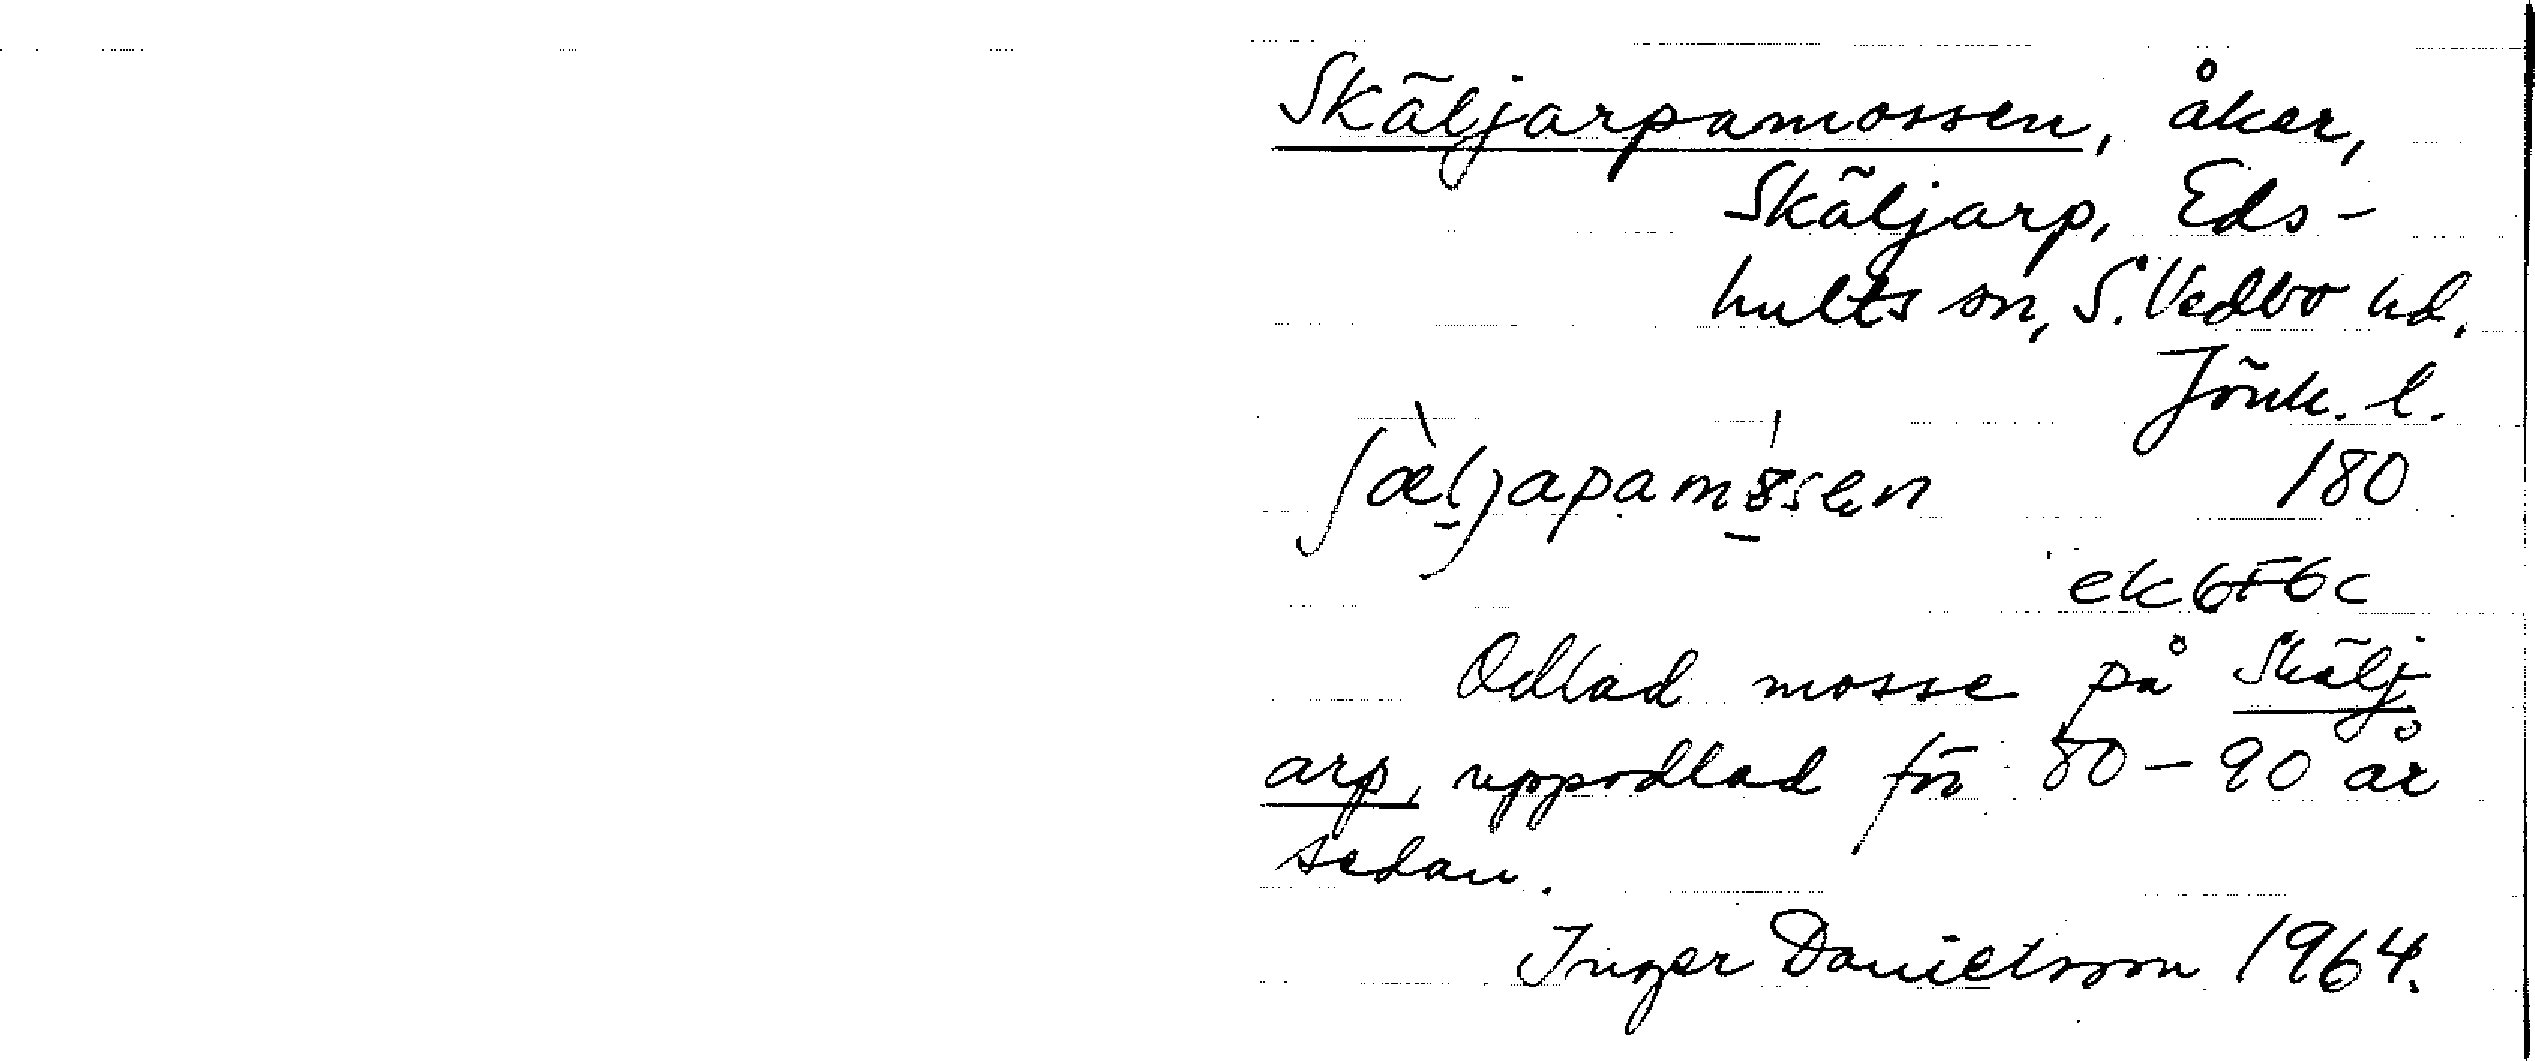 Skäljarpamossen, åker,
Skäljarp, Eds-
hults sn, S. Vedbo hd.
Jönk. l.
180
ek 6F6c
Odlad mosse på Skälj
arp, uppodlad för 80-90 år
sedan.
Inger Danielsson 1964.